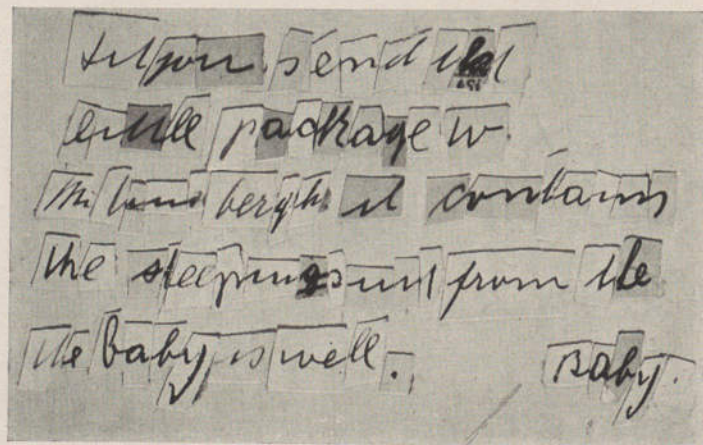 you send that
little package to
Mr lindbergh it contains
the sleepingsuit from the
the Baby is well. Baby.